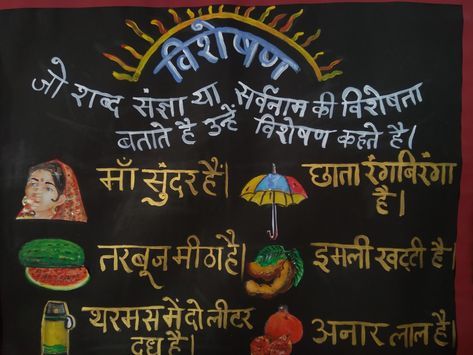 विशेषण
जो शब्द संज्ञा या सर्वनाम की विशेषता
बताते है उन्हें विशेषण कहते है।
माँ सुंदर है।
छाता रंगबिरंगा
है।
तरबूज मीठा है।
इमली खट्टी है।
थरमस में दो लीटर
दूध है।
अनार लाल है।